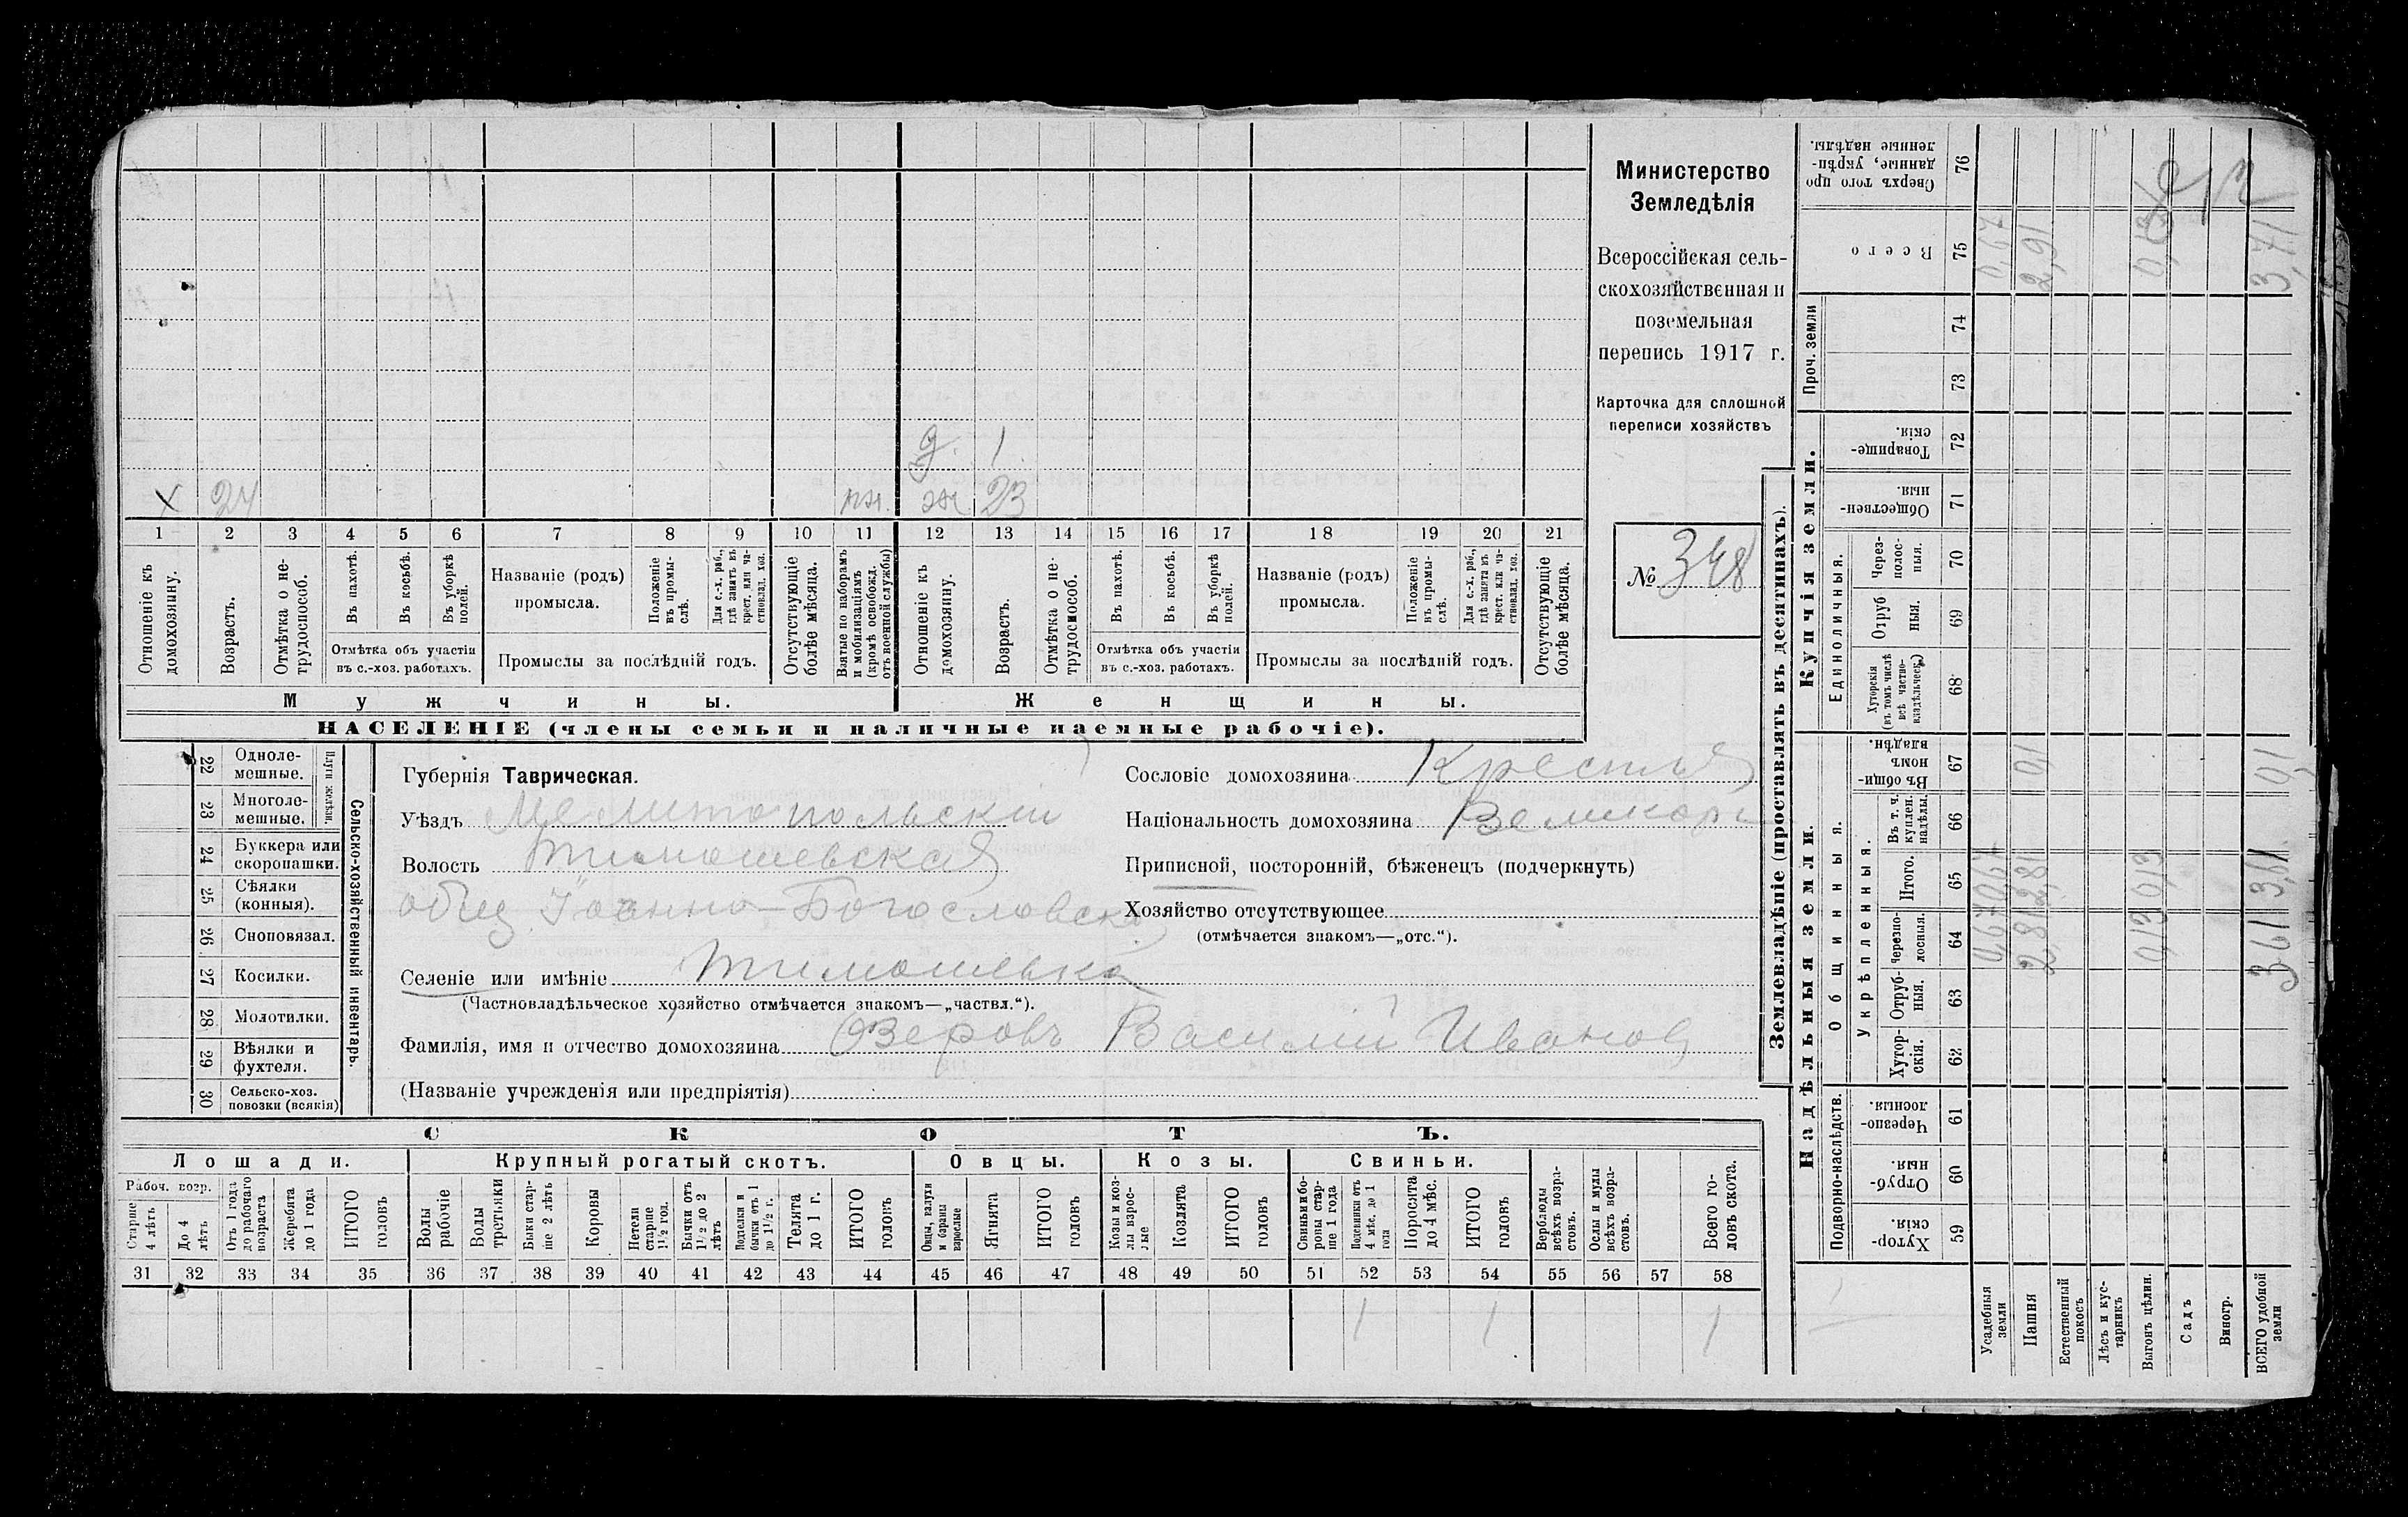 Министерство
Земледѣлія
Всероссійская сель-
скохозяйственная и
поземельная
перепись 1917 г.
Карточка для сплошной
переписи хозяйствъ
№ 348
х 24 пн. ж 23
д. 1
1 2 3 4 5 6 7 8 9 10 11 12 13 14 15 16 17 18 19 20 21
Отношеніе къ домохозяину.
Возрастъ.
Отмѣтка о не-трудоспособ.
Въ пахотѣ.
Въ косьбѣ.
Въ уборкѣ полей.
Отмѣтка объ участіи
въ с.-хоз. работахъ.
Названіе (родъ)
промысла.
Положеніе въ промы-слѣ.
Для с.-х. раб., гдѣ занятъ въ крест. или ча-стновлад. хоз.
Промыслы за послѣдній годъ.
Отсутствующіе болѣе мѣсяца.
Взятые по наборамъ и мобилизаціямъ (кромѣ освобожд. отъ военной службы)
Отношеніе къ домохозяину.
Возрастъ.
Отмѣтка о не-трудоспособ.
Въ пахотѣ.
Въ косьбѣ.
Въ уборкѣ полей.
Отмѣтка объ участіи
въ с.-хоз. работахъ.
Названіе (родъ)
промысла.
Положеніе въ промы-слѣ.
Для с.-х. раб., гдѣ занята въ крест. или ча-стновлад. хоз.
Промыслы за послѣдній годъ.
Отсутствующіе болѣе мѣсяца.
Мужчины.
Женщины.
НАСЕЛЕНІЕ (члены семьи и наличные наемные рабочіе).
Сельско-хозяйственный инвентарь.
Плуги желѣзн.
22 Одноле-мешные.
23 Многоле-мешные.
24 Буккера или скоропашки.
25 Сѣялки (конныя).
26 Сноповязал.
27 Косилки.
28 Молотилки.
29 Вѣялки и фухтеля.
30 Сельско-хоз. повозки (всякія)
Губернія Таврическая.
Уѣздъ Мелитопольскій
Волость Тимошевская
общ. Іоанно-Богословск
Селеніе или имѣніе Тимошевка
(Частновладѣльческое хозяйство отмѣчается знакомъ—„частвл.“).
Фамилія, имя и отчество домохозяина Озеровъ Василій Иванов
(Названіе учрежденія или предпріятія)
Сословіе домохозяина Крестья
Національность домохозяина Великор
Приписной, посторонній, бѣженецъ (подчеркнуть)
Хозяйство отсутствующее
(отмѣчается знакомъ—„отс.“).
СКОТЪ.
Лошади. Крупный рогатый скотъ. Овцы. Козы. Свиньи.
Рабоч. возр.
Старше 4 лѣтъ
До 4 лѣтъ
Отъ 1 года до рабочаго возраста
Жеребята до 1 года
ИТОГО головъ
Волы рабочіе
Волы третьяки
Быки стар-ше 2 лѣтъ
Коровы
Нетели старше 1½ год.
Бычки отъ 1½ до 2 лѣтъ
Подтелки и бычки отъ 1 до 1½ г.
Телята до 1 г.
ИТОГО головъ
Овцы, валухи и бараны взрослые
Ягнята
ИТОГО головъ
Козы и коз-лы взрос-лые
Козлята
ИТОГО головъ
Свиньи и бо-ровы стар-ше 1 года
Подсвинки отъ 4 мѣс. до 1 года
Поросята до 4 мѣс.
ИТОГО головъ
Верблюды всѣхъ возра-стовъ.
Ослы и мулы всѣхъ возра-стовъ.
Всего го-ловъ скота.
31 32 33 34 35 36 37 38 39 40 41 42 43 44 45 46 47 48 49 50 51 52 53 54 55 56 57 58
1 1 1
Землевладѣніе (проставлять въ десятинахъ).
Надѣльныя земли.
Купчія земли.
Проч. земли
Подворно-наслѣдств.
Общинныя.
Укрѣпленныя.
Единоличныя.
Хутор-скія. 59
Отруб-ныя. 60
Черезпо-лосныя. 61
Хутор-скія. 62
Отруб-ныя. 63
Черезпо-лосныя. 64
Итого. 65
Въ т. ч. куплен. надѣлы. 66
Въ общи-номъ владѣн. 67
Хуторскія (въ томъ числѣ всѣ частно-владѣльческ.) 68
Отруб ныя. 69
Через-полос-ныя. 70
Обществен-ныя. 71
Товарище-скія. 72
73
74
Всего 75
Сверхъ того про данные, укрѣп-ленные надѣлы. 76
Усадебныя земли 0,67 0,67 0,67
Пашня 2,81 2,81 0,1 2,91
Естественный покосъ
Лѣсъ и кус-тарникъ
Выгонъ цѣлин. 0,13 0,13 0,13
Садъ
Виногр.
ВСЕГО удобной земли 3,61 3,61 0,1 3,71